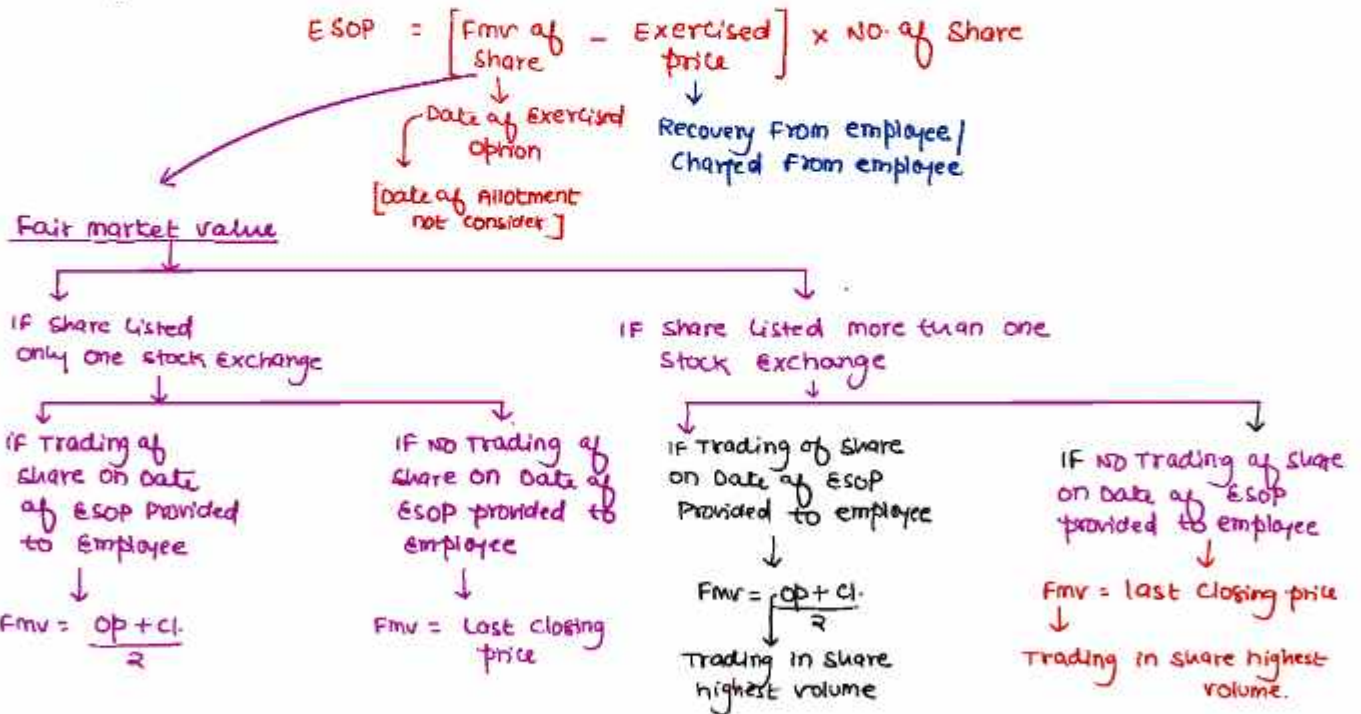 ESOP = [Fmv of Share - Exercised price] x NO. of Share
Date of Exercised
Option
[Date of Allotment
not consider]
Recovery From employee/
Charged From employee
Fair market value
IF Share Listed
only one stock Exchange
IF Share Listed more than one
Stock Exchange
IF Trading of
share on Date
of ESOP Provided
to Employee
Fmv = Op + Cl. / 2
IF NO Trading of
share on Date of
ESOP provided to
Employee
Fmv = Last Closing
price
IF Trading of Share
on Date of ESOP
Provided to employee
Fmv = Op + Cl. / 2
Trading in Share
highest volume
IF NO Trading of Share
on Date of ESOP
provided to employee
Fmv = last Closing price
Trading in share highest
volume.